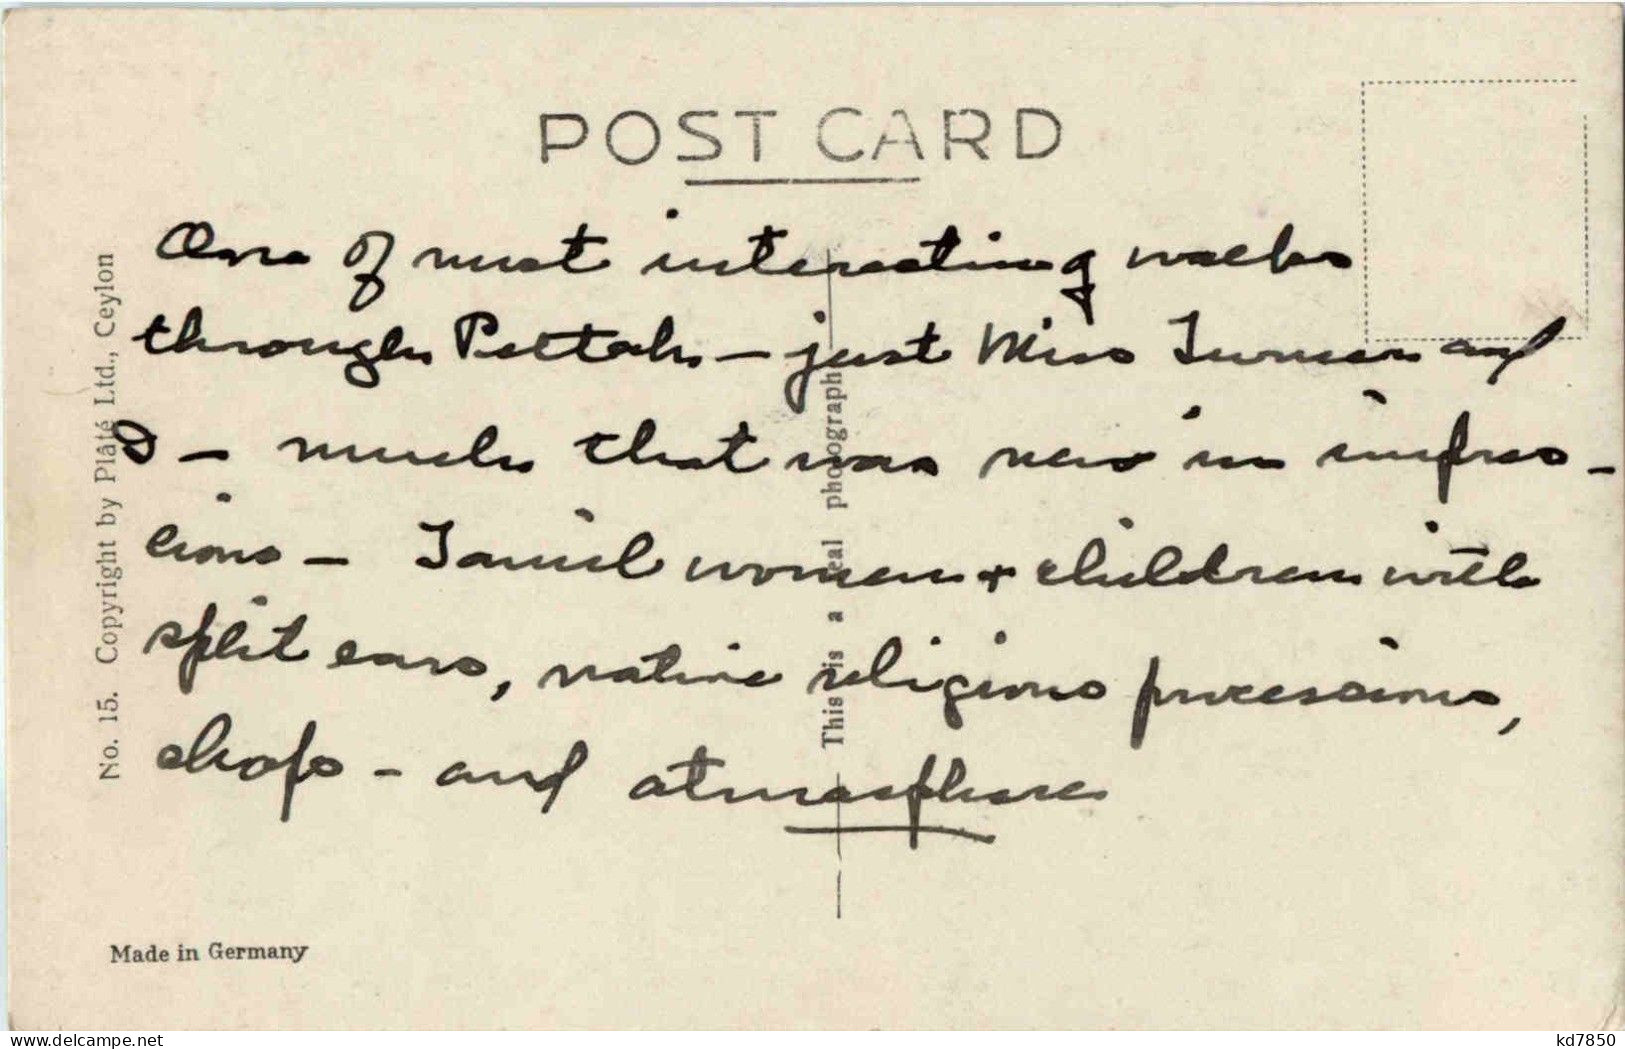 POST CARD
One of most interesting walks
through Pettah - just Miss Turner and
I - much that was new in impres-
sions - Tamil women + children with
split ears, native religious processions,
shops - and atmosphere
No. 15. Copyright by Plâté Ltd., Ceylon
This is a real photograph
Made in Germany
delcampe.net
kd7850